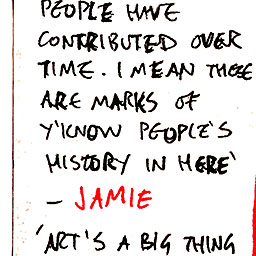 PEOPLE HAVE
CONTRIBUTED OVER
TIME. I MEAN THESE
ARE MARKS OF
Y'KNOW PEOPLE'S
HISTORY IN HERE'
– JAMIE
'ART'S A BIG THING